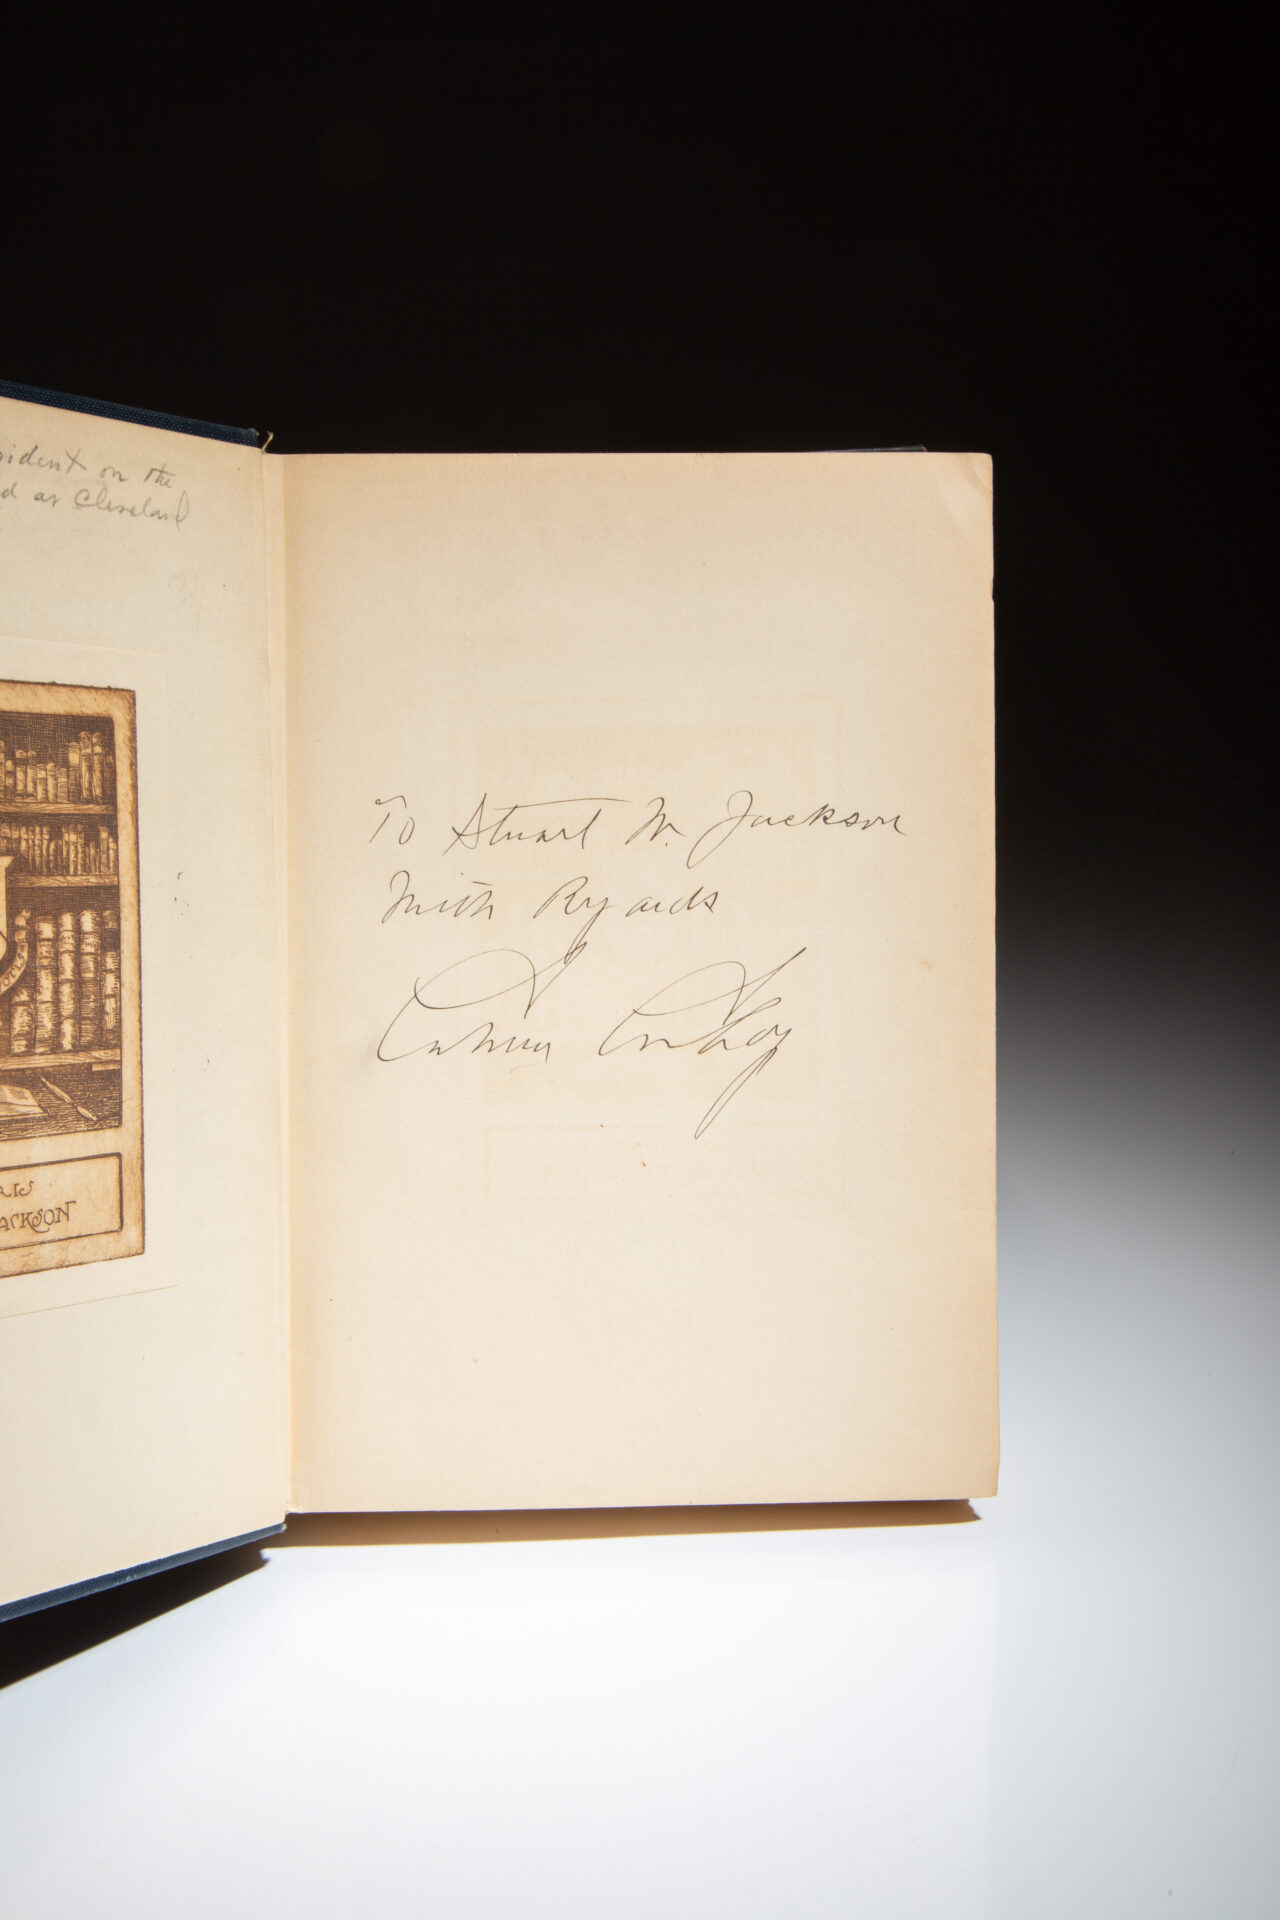 sident on the
d as Cleveland
RIS
JACKSON
To Stuart W. Jackson
With Regards
Calvin Coolidge